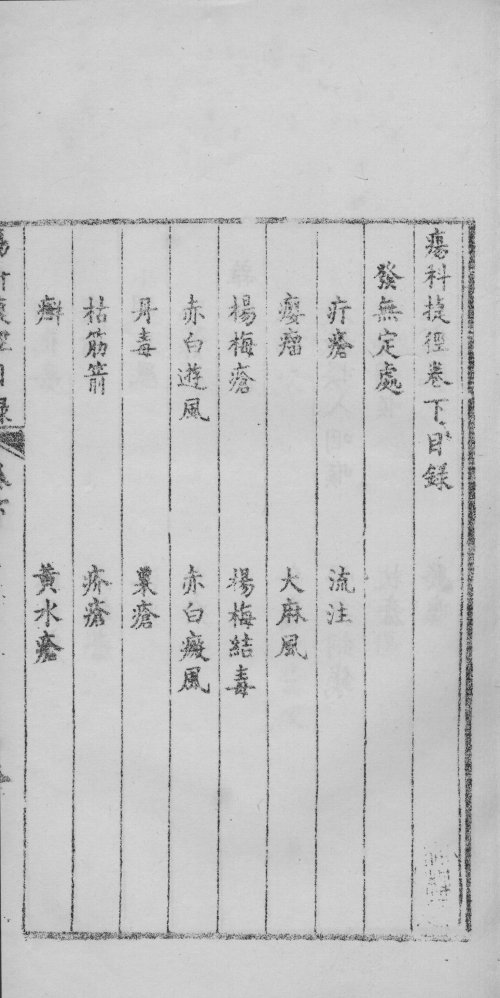 瘍科捷徑卷下目錄
發無定處
疔瘡　流注
癭瘤　大麻風
楊梅瘡　楊梅結毒
赤白遊風　赤白癜風
丹毒　粟瘡
枯筋箭　疥瘡
癬　黃水瘡